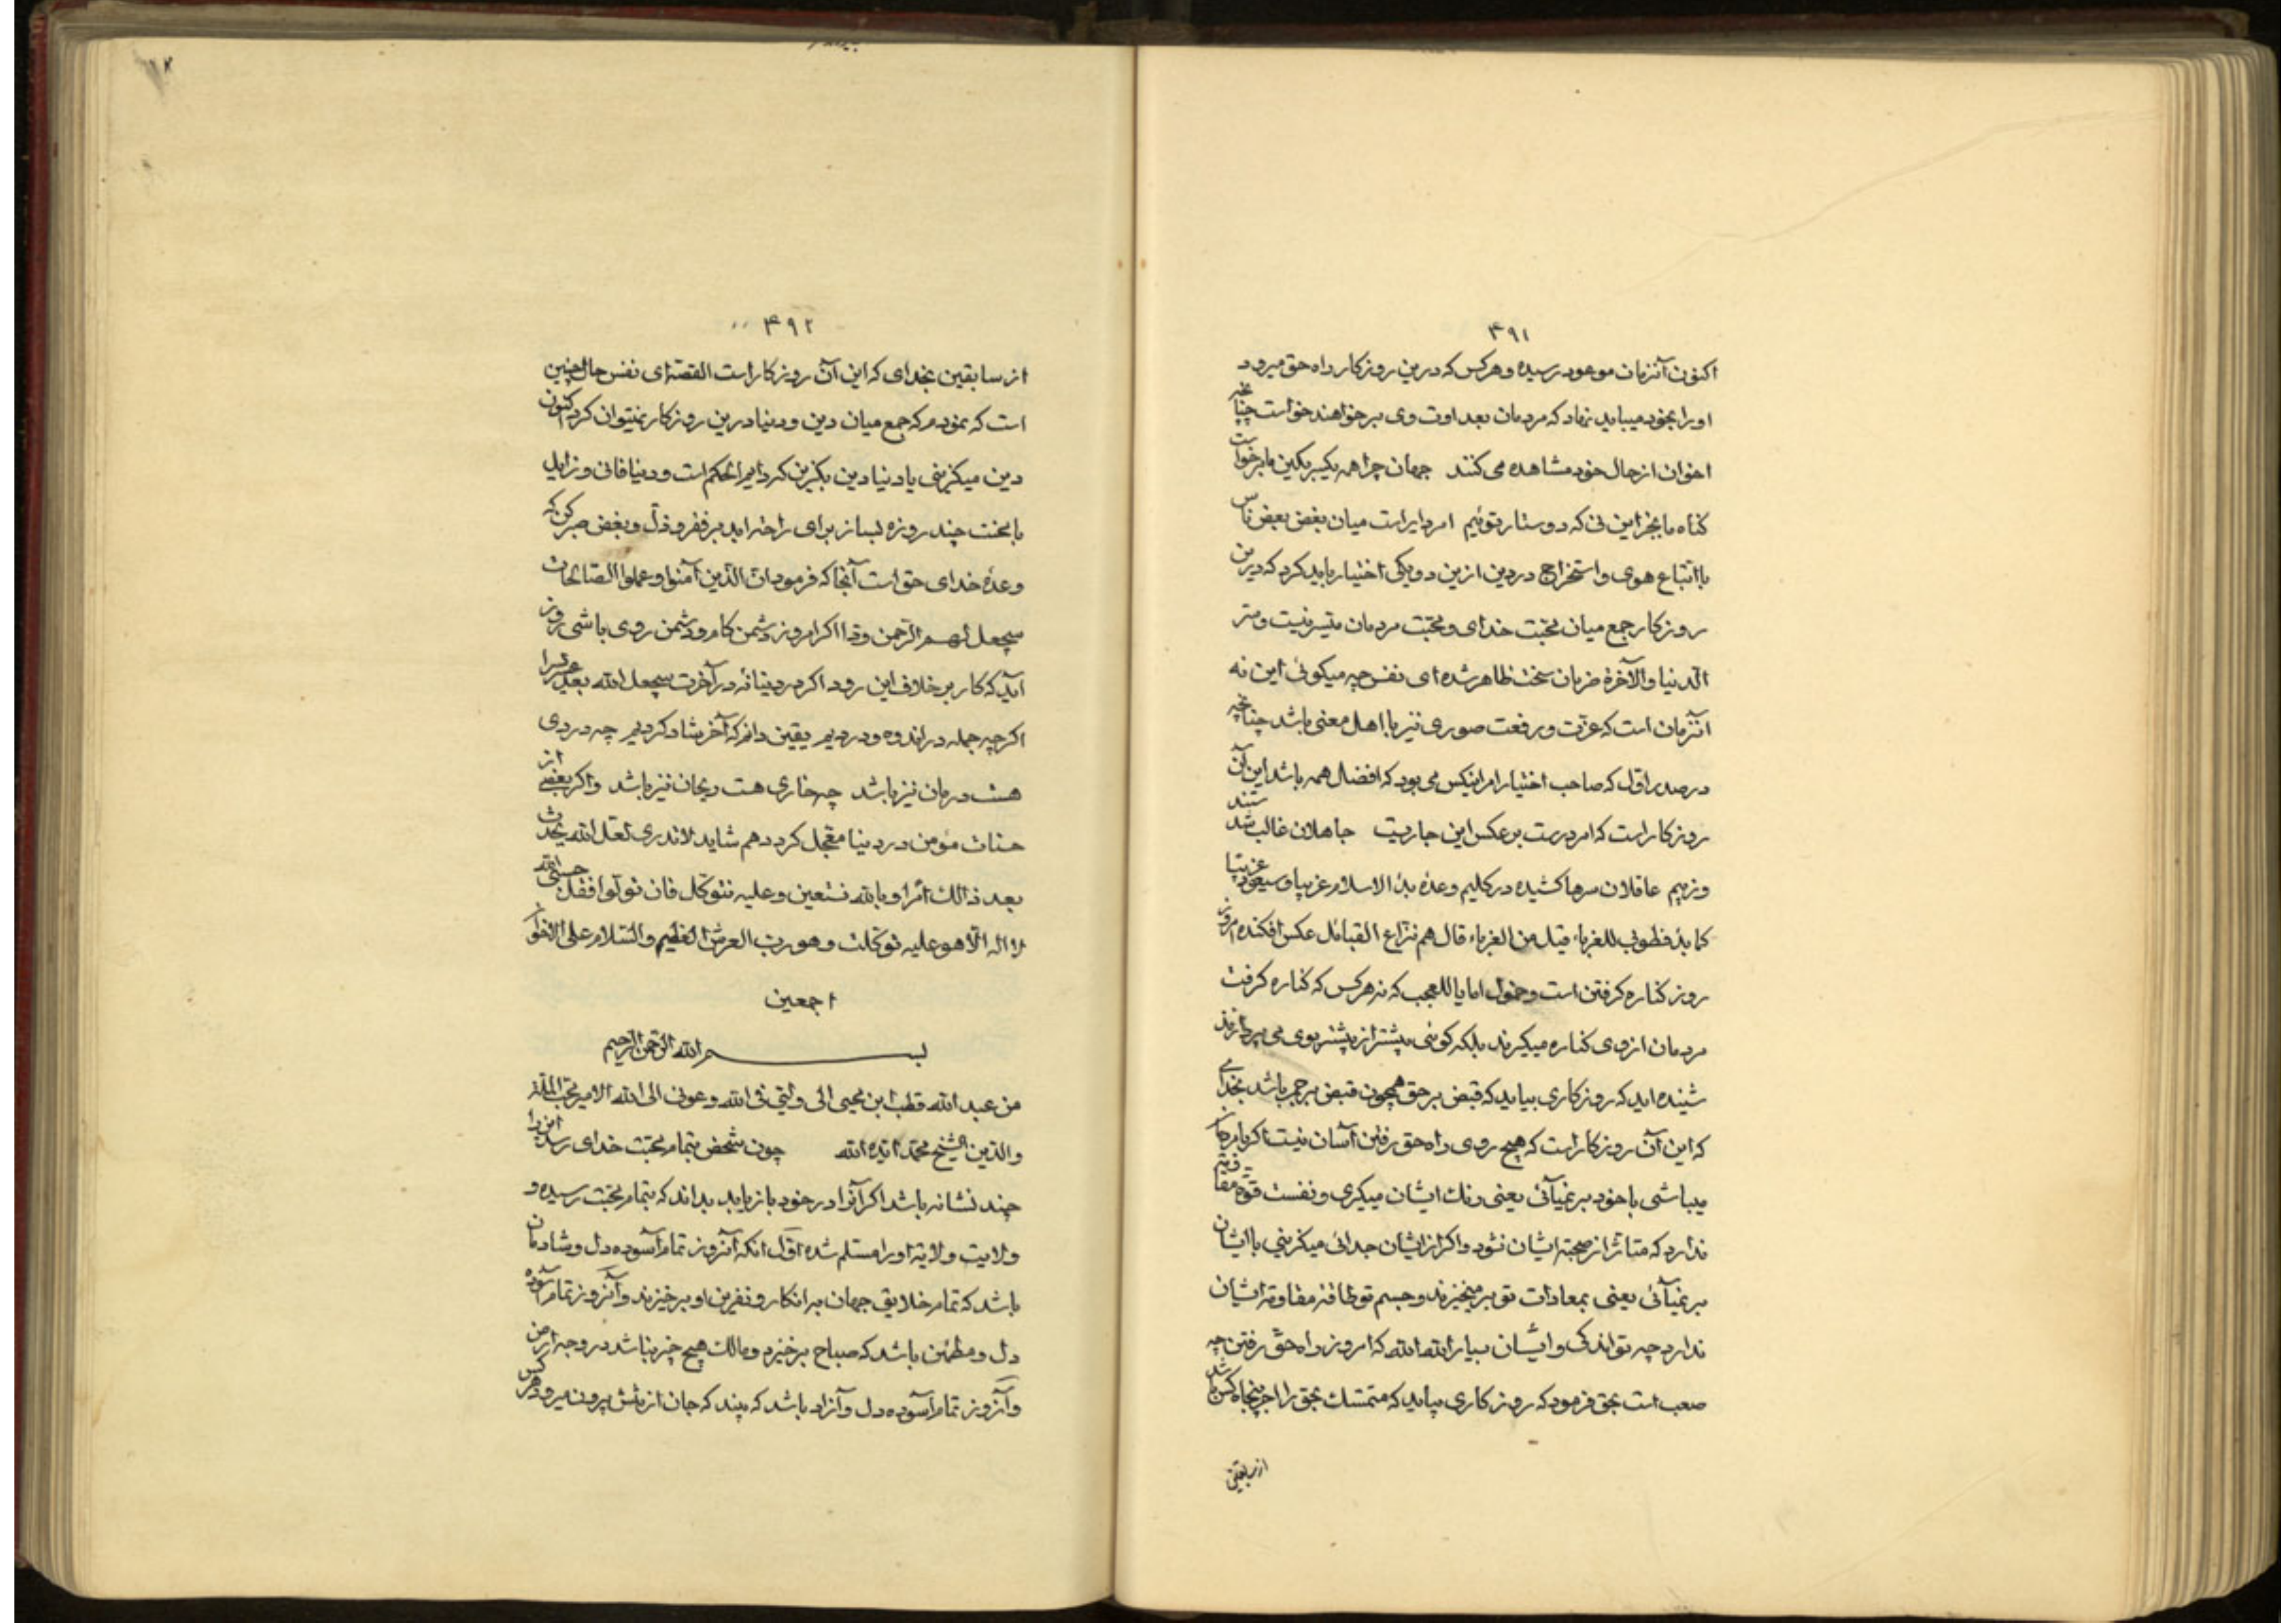 ۴۹۱
اکنون آنزمان موعود رسیده و هر کس که درین روزکار راه حق میرود
او را بخود میباید نهاد که مردمان بعداوت وی برخواهند خواست چنانچه
اخوان از حال خود مشاهده می کنند جهان چرا همه یکسر بکین ما برخواست
کناه ما بجز این نی که دوستار توئیم امر دایر است میان بغض بعض ناس
با اتباع هوی و استخراج در دین ازین دو یکی اختیار باید کرد که درین
روزکار جمع میان محبت خدای و محبت مردمان متیسر نیست و سّر
الدنیا والآخرة ضرتان سخت ظاهر شده ای نفس چه میکوئی این نه
آنزمان است که عزت و رفعت صوری نیز با اهل معنی باشد چنانچه
در صدر اول که صاحب اختیار امر اینکس می بود که افضل همه باشد این آن
روزکار است که امر درست بر عکس این جاریت جاهلان غالب شدستند
وزبیم عاقلان سرها کشیده در کلیم وعده بدئ الاسلام غریبا و سیعود غریبا
کما بدئ فطوبی للغرباء قیل من الغرباء قال هم نزاع القبائل عکس افکنده امروز
روز کناره کرفتن است و خمول اما یا للعجب که نه هر کس که کناره کرفت
مردمان از وی کناره میکیرند بلکه کوئی پیشتر از پیشتر بوی می پردازند
شنیده اید که روزکاری بیاید که قبض بر حق همچون قبض بر جمر باشد بخدای
که این آن روزکار است که هیچ روی راه حق رفتن آسان نیست اکر با مردمان
میباشی با خود بر نمیآئی یعنی رنک ایشان میکیری و نفست قوة مقاومت
ندارد که متاثر از صحبة ایشان نشود و اکر از ایشان جدائی میکزینی با ایشان
بر نمیآئی یعنی بمعادات تو بر میخیزند و جسم تو طاقة مقاومة ایشان
ندارد چه تو اندکی و ایشان بسیار الله الله که امروز راه حق رفتن چه
صعب است بحق فرمود که روزکاری بیاید که متمسک بحق را اجر پنجاه کس باشد
از سابقین
۴۹۲
از سابقین بخدای که این آن روزکار است القصه ای نفس حال چنین
است که نمودم که جمع میان دین و دنیا درین روزکار نمیتوان کرد اکنون
دین میکزینی یا دنیا دین بکزین که دایم الحکم است و دنیا فانی و زایل
با محنت چند روزه بساز برای راحة ابد بر فقر و ذلّ و بغض صبر کن که
وعدهٔ خدای حق است آنجا که فرمود انّ الذین آمنوا و عملوا الصالحات
سیجعل لهم الرحمن ودا اکر امروز دشمن کام و دشمن روی باشی روزی
آید که کار بر خلاف این رود اکر در دنیا نه در آخرت سیجعل الله بعد عسر یسرا
اکرچه جمله در اندوه و دردیم یقین دانم که آخر شاد کردیم چه دردی
هست درمان نیز باشد چه خاری هست ریحان نیز باشد و اکر بعضی از
حسنات مؤمن در دنیا معجل کردد هم شاید لا ندری لعل الله یحدث
بعد ذالک أمرا و بالله نستعین و علیه نتوکل فان تولوا فقل حسبی الله
لا اله الّا هو علیه توکلت و هو رب العرش العظیم و السّلام علی الاخوان
اجمعین
بسم الله الرحمن الرحیم
من عبد الله قطب ابن محیی الی ولیّی فی الله و عونی الی الله الامیر محب الملة
والدین الشیخ محمد ایّده الله چون شخص بتمام محبت خدای رسد این را
چند نشانه باشد اکر آنرا در خود بازیابد بداند که بتمام محبت رسیده و
ولایت ولایة او را مسلم شده اوّل انکه آنروز تمام آسوده دل و شادمان
باشد که تمام خلایق جهان بر انکار و نفرین او برخیزند و آنروز تمام آسوده
دل و مطمئن باشد که صباح برخیزد و مالک هیچ چیز نباشد در وجه ارض
و آنروز تمام آسوده دل و آزاد باشد که بیند که جان از تنش بیرون میرود هر کس